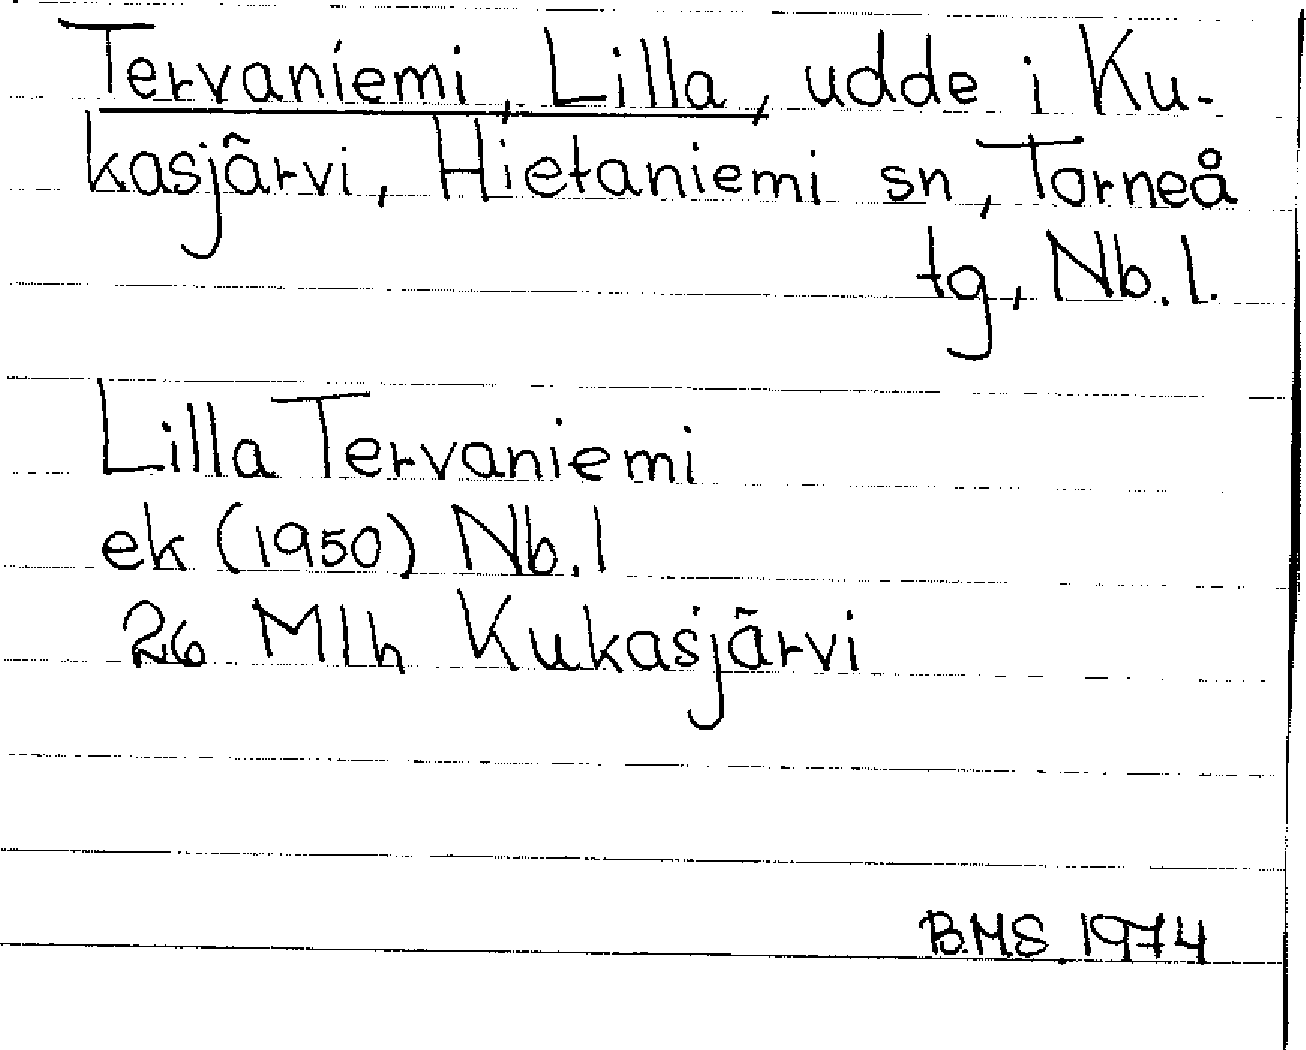 Tervaniemi, Lilla, udde i Ku-
kasjärvi, Hietaniemi sn, Torneå
tg, Nb. l.
Lilla Tervaniemi
ek (1950) Nb. l
26 Mlh Kukasjärvi
B.M.S. 1974